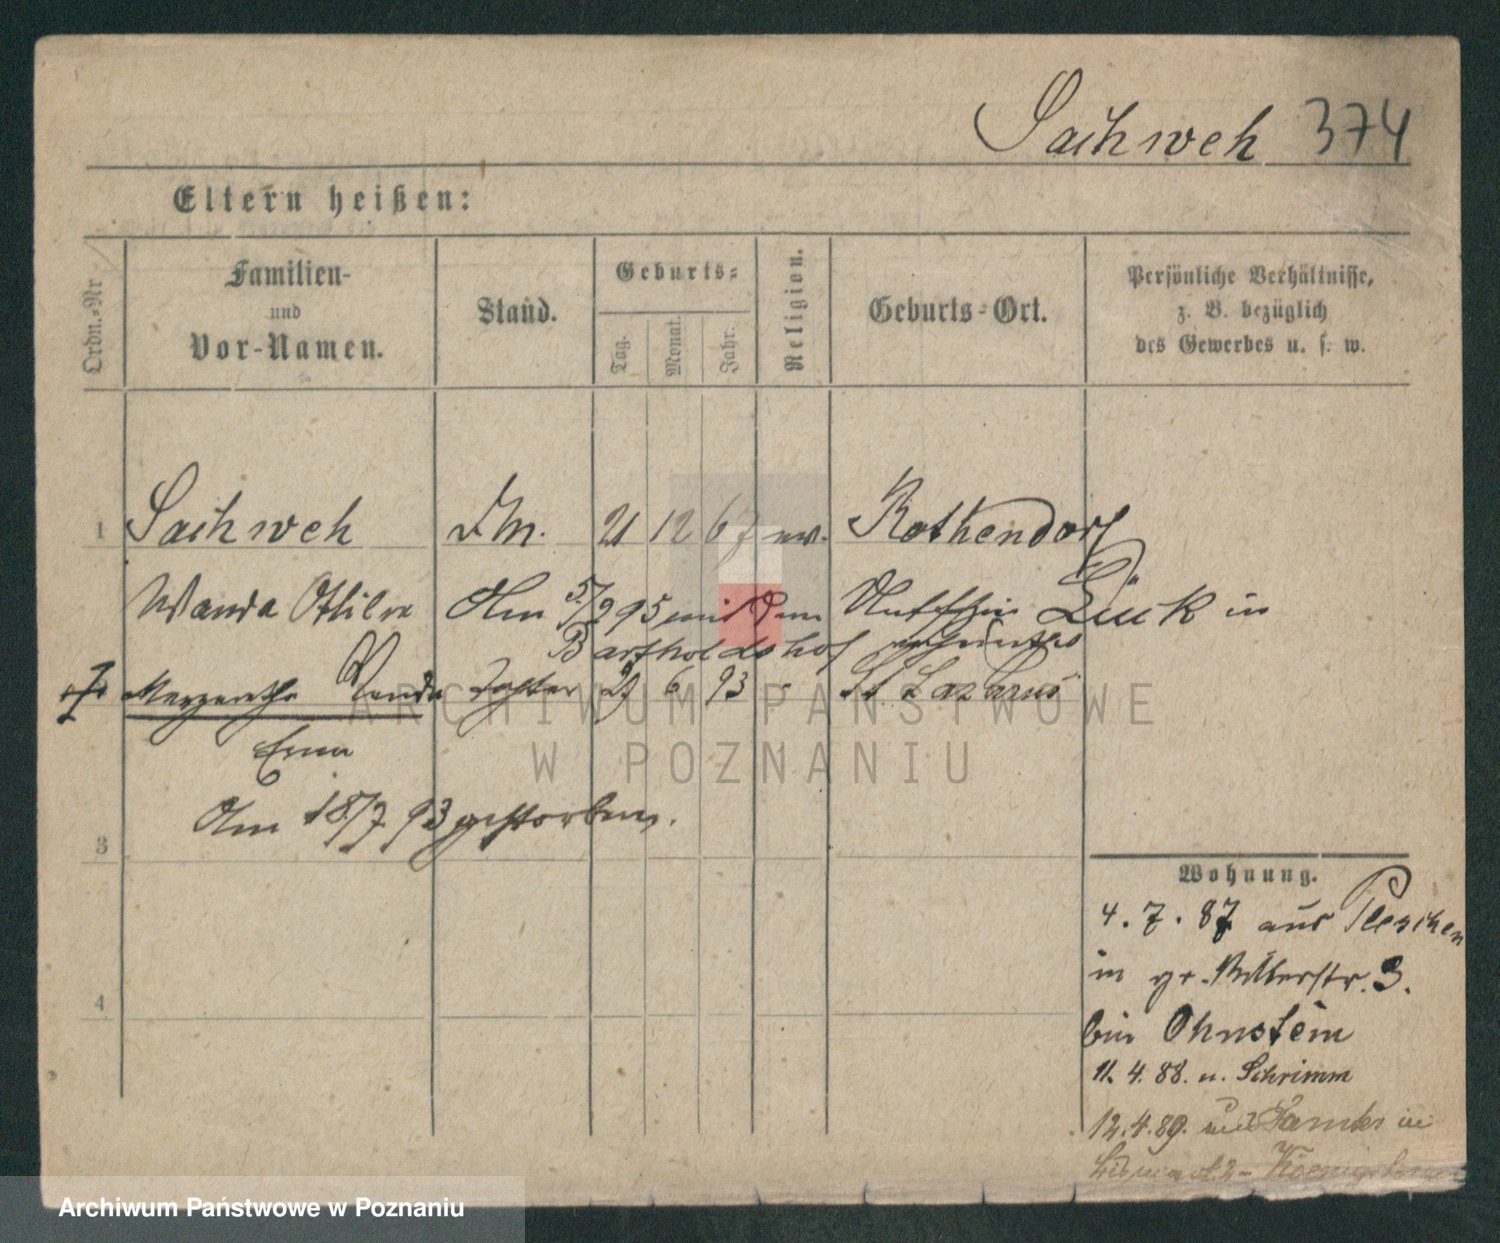 Sachweh 374
Eltern heißen:
Ordn.-Nr
Familien-
und
Vor-Namen.
Stand.
Geburts-
Tag.
Monat.
Jahr.
Religion.
Geburts-Ort.
Persönliche Verhältnisse,
z. B. bezüglich
des Gewerbes u. s. w.
1 Sachweh Dm. 21 12 67 ev. Rothendorf
Wanda Ottilie Am 5/2 95 mit dem Lück in
Bartholdshof
Margarethe Wanda Tochter 6 93 - St Lazarus
Erna
Am 18/7 93 gestorben.
3
4
Wohnung.
4. 7. 87 aus Pleschen
in gr. Ritterstr. 3.
bei Ohnstein
11. 4. 88. n. Schrimm
12. 4. 89. Samter in
ARCHIWUM PAŃSTWOWE
W POZNANIU
Archiwum Państwowe w Poznaniu